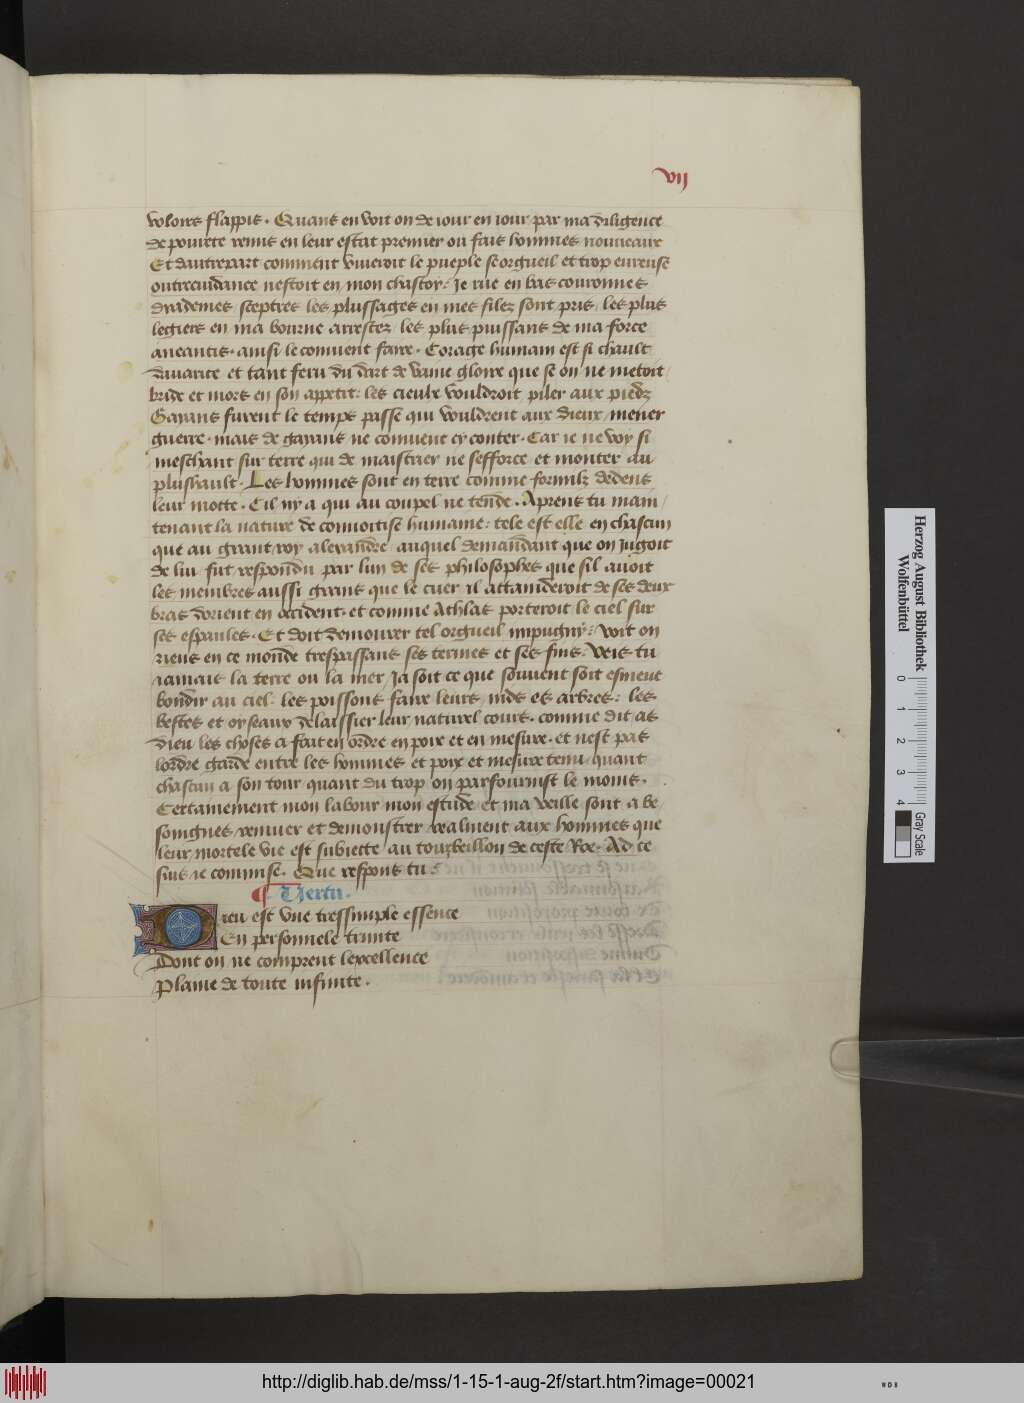 vii
voloirs flappis. Quans en voit on de iour en iour par ma diligence
de pourete venus en leur estat premier ou fais hommes nouueaux
Et dautrepart comment viueroit le pueple se orgueil et trop eureuse
outrecuidance nestoit en mon chastoy: Je rue en bas couronnes
dyademes sceptres les plussages en mes filez sont pris, les plus
legiers en ma bourne arrestez, les plus puissans de ma force
aneantis. ainsi le conuient faire. Corage humain est si chault
dauarice et tant feru du dart de vaine gloire que se on ne metoit
bride et mors en son appetit: les cieulx vouldroit piler aux piedz
Gayans furent le temps passe qui vouldrent aux dieux mener
guerre. mais de gayans ne conuient cy conter. Car ie ne voy si
meschant sur terre qui de maistrier ne sefforce et monter au
plushault. Les hommes sont en terre comme formilz dedens
leur motte. Cil ny a qui au coupel ne tende. Aprens tu main
tenant la nature de conuoitise humaine: tele est elle en chascun
que au grant roy alexandre auquel demandant que on jugoit
de lui fut respondu par lun de ses philosophes que sil auoit
les membres aussi grans que le cuer il attainderoit de ses deux
bras dorient en occident. et comme Athlas porteroit le ciel sur
ses espaules. Et doit demourer tel orgueil impugny: voit on
riens en ce monde trespassans ses termes et ses fins. Veis tu
iamais la terre ou la mer, Ja soit ce que souuent soit esmeue
bondir au ciel. les poissons faire leurs nids es arbres: les
bestes et oyseaux delaissier leur naturel cours. comme dit as
dieu les choses a fait en ordre en poix et en mesure. et nest pas
lordre garde entre les hommes et poix et mesure tenu quant
chascun a son tour quant du trop on parfournist le moins.
Certainement mon labour mon estude et ma veille sont a be
soingnes renuer et demonstrer realment aux hommes que
leur mortele vie est subiecte au tourbeillon de ceste Roe. Ad ce
suis ie commise. Que respons tu
Vertu.
Dieu est vne tressimple essence
En personnele trinite
Dont on ne comprent lexcellence
Plaine de toute infinite.
Herzog August Bibliothek
Wolfenbüttel
0 1 2 3 4
Gray Scale
http://diglib.hab.de/mss/1-15-1-aug-2f/start.htm?image=00021
WDB